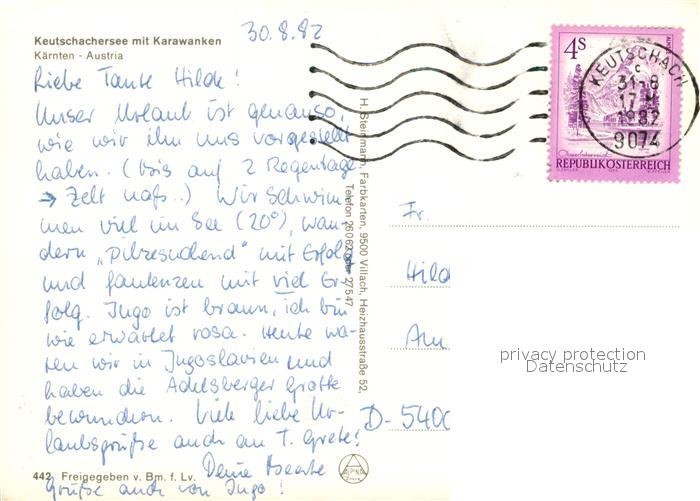 30.8.82
Keutschachersee mit Karawanken
Kärnten - Austria
Liebe Tante Hilde!
Unser Urlaub ist genauso,
wie wir ihn uns vorgestellt
haben. (bis auf 2 Regentage
→ Zelt naß..) Wir schwim-
men viel im See (20°), wan-
dern „pilzesuchend" mit Erfolg
und faulenzen mit viel Er-
folg. Ingo ist braun, ich bin
wie erwartet rosa. Heute wa-
ren wir in Jugoslavien und
haben die Adelsberger Grotte
bewundern. Viele liebe Ur-
laubsgrüße auch an T. Grete!
Deine
Grüße auch von Ingo!
442 Freigegeben v. Bm. f. Lv.
ALPINA
H. Steinmann, Farbkarten, 9500 Villach, Heizhausstraße 52,
Telefon 26062 oder 27547
4s
REPUBLIK ÖSTERREICH
KEUTSCHACH
c
31-8
1982
9074
Fr.
Hild
Am
D-5400
privacy protection
Datenschutz